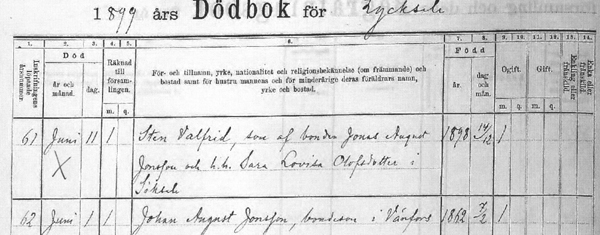 1899 års Dödbok för Lycksele
1. 2. 3. 4. 5. 6. 7. 8. 9. 10. 11. 12. 13. 14.
Inskrifningens löpande årsnummer. Död år och månad. dag. Räknad till församlingen. m. q. För- och tillnamn, yrke, nationalitet och religionsbekännelse (om främmande) och bostad samt för hustru mannens och för minderårige deras föräldrars namn, yrke och bostad. Född år. dag och mån. Ogift. m. q. Gift. Enka eller
61 Juni 11 1 Sten Valfrid, son af bonden Jonas August 1898 14/12 1
X Jonsson och h.h. Sara Lovisa Olofsdotter i
Söksele
62 Juni 1 1 Johan August Jonsson, bondeson i Vänfors 1862 7/2 1